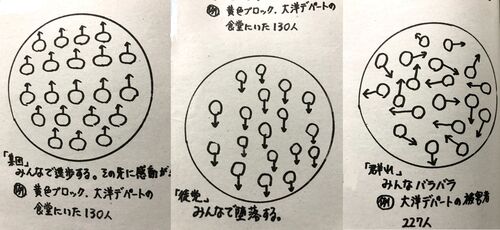 「集団」
みんなで進歩する。その先に感動が
例 黄色ブロック、大洋デパートの
食堂にいた130人
例 黄色ブロック、大洋デパートの
食堂にいた130人
「徒党」
みんなで堕落する。
「群れ」
みんなバラバラ
例 大洋デパートの被害者
227人